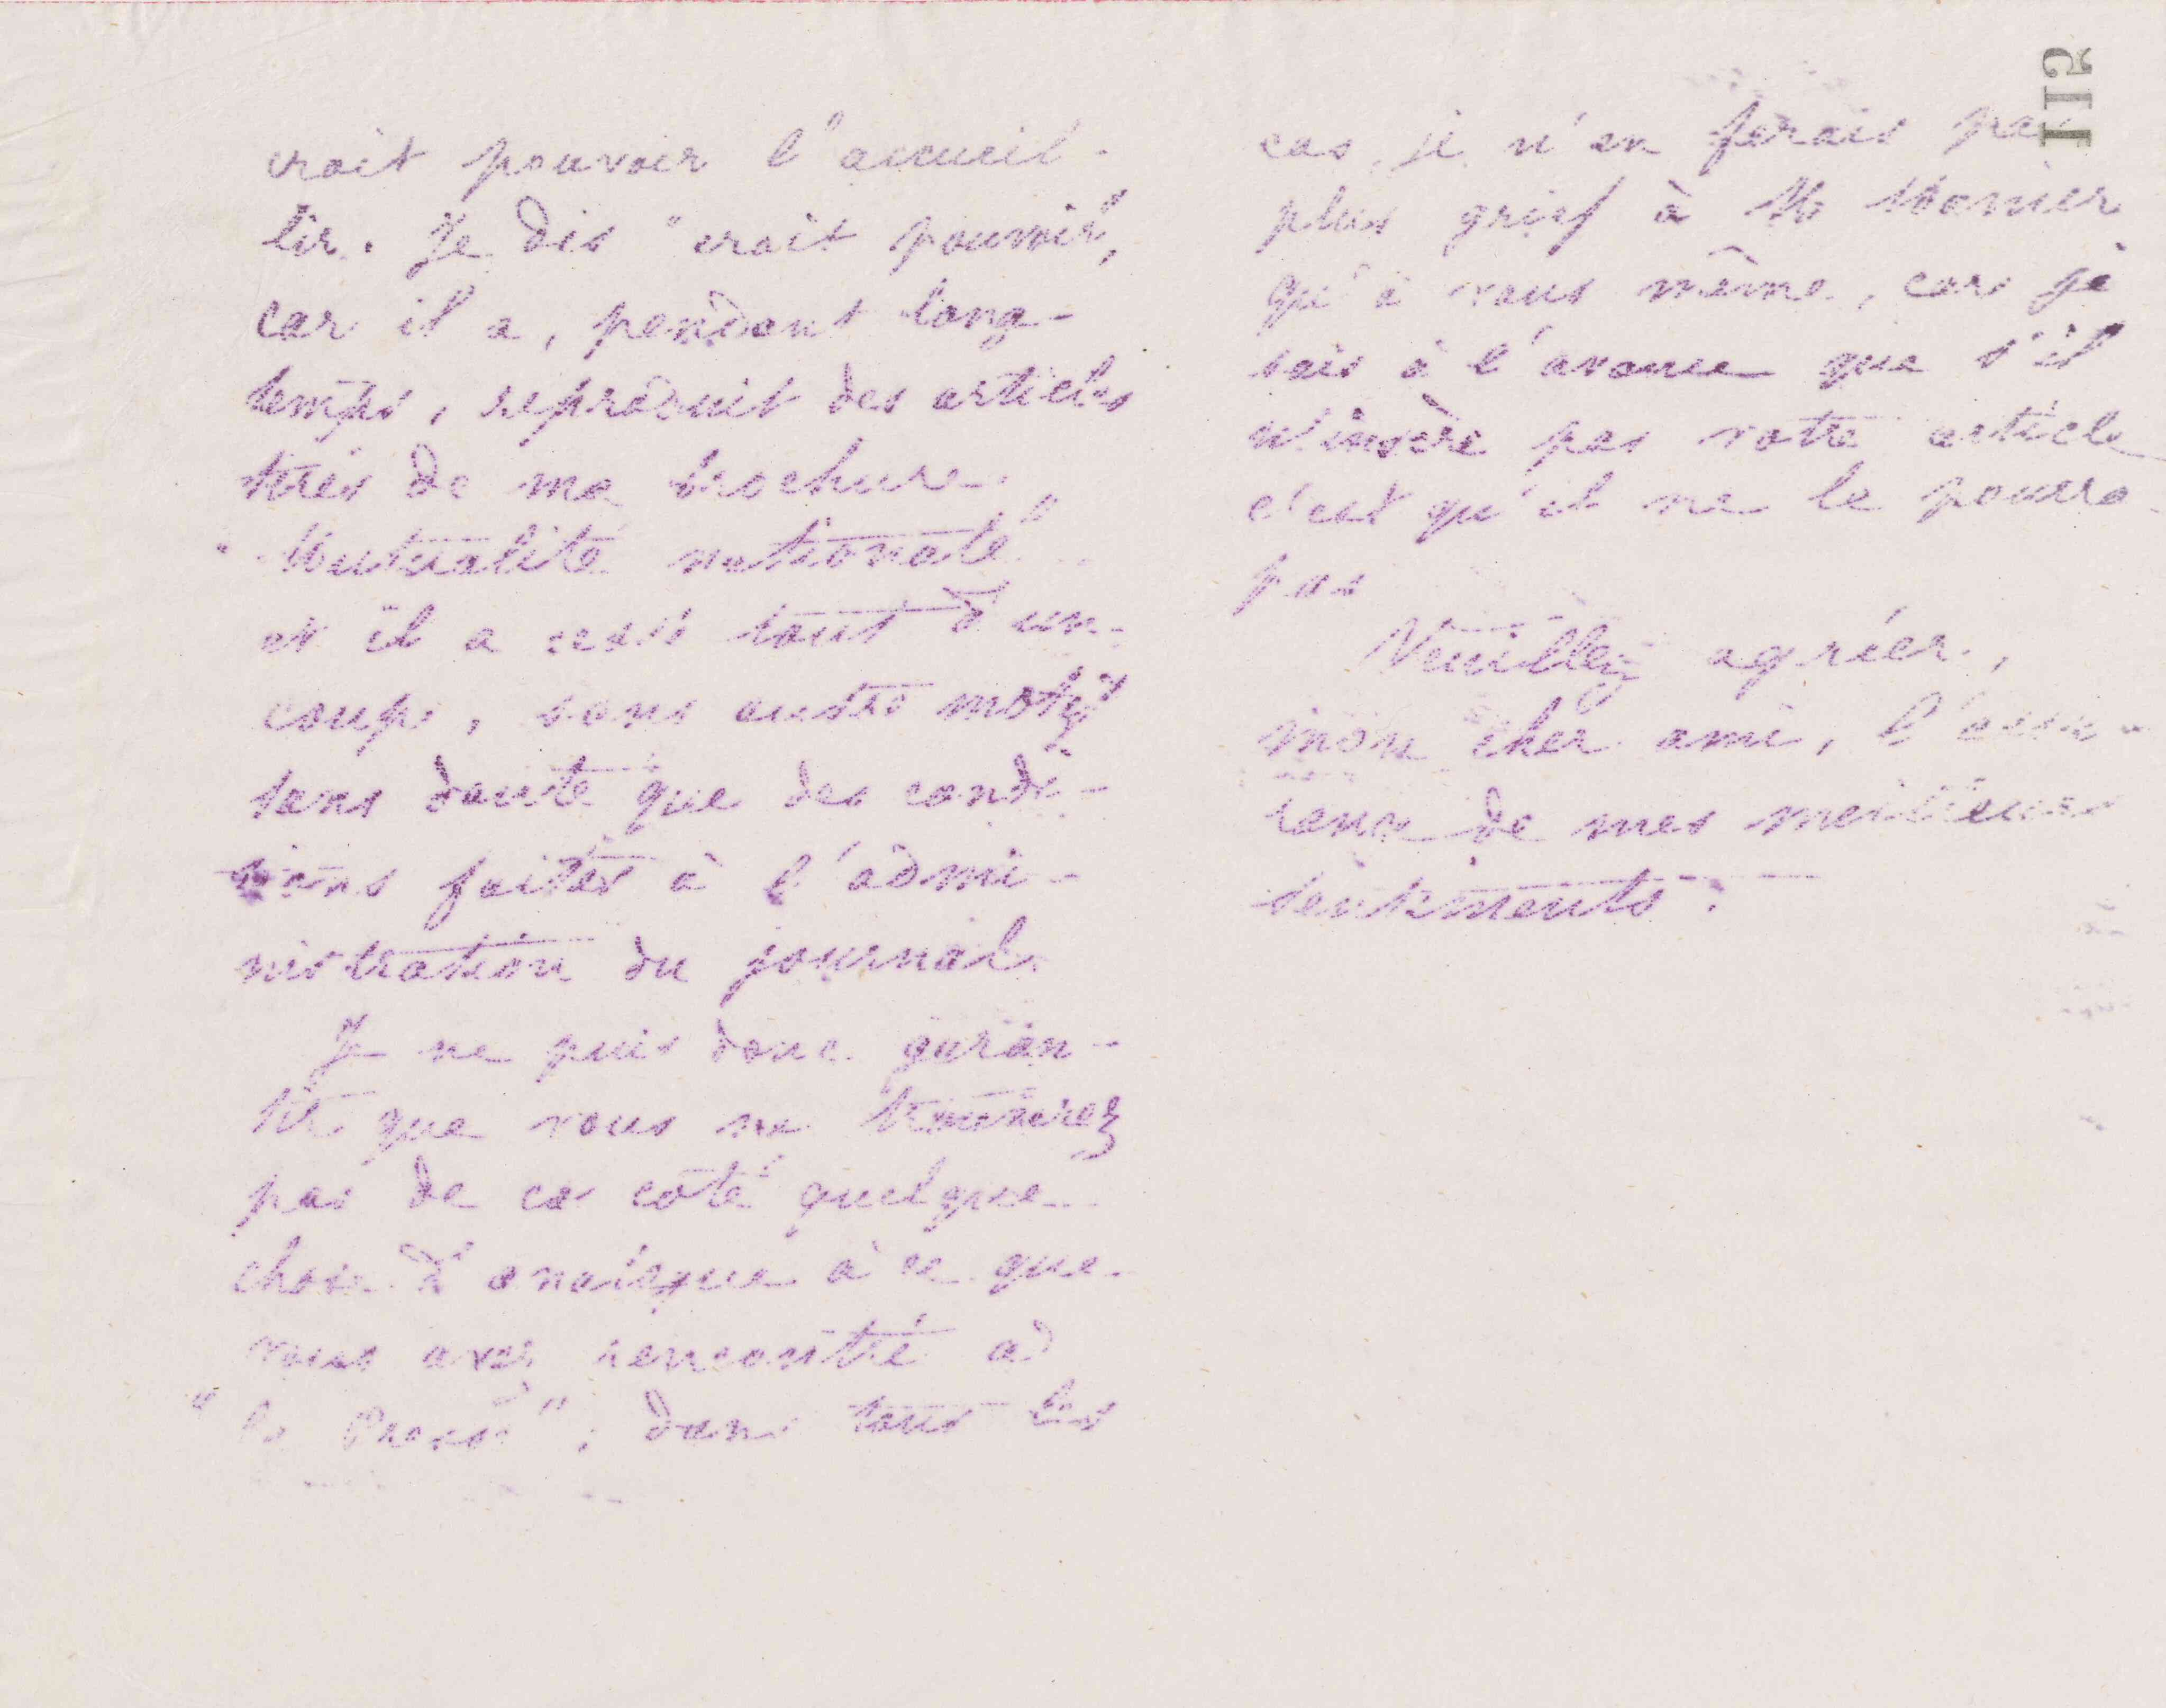 croit pouvoir l'accueil-
lir. Je dis "croit pouvoir",
car il a, pendant long-
temps, reproduit des articles
tirés de ma brochure
"Mutualité nationale"
et il a cessé tout d'un
coup, sans autre motif
sans doute que des condi-
tions faites à l'admi-
nistration du journal.
Je ne puis donc garan-
tir que vous ne trouverez
pas de ce côté quelque
chose d'analogue à ce que
vous avez rencontré au
"la Presse"; dans tous les
115
cas, je n'en ferais pas
plus grief à M.
qu'à vous même, car je
sais à l'avance que s'il
n'insère pas votre article
c'est qu'il ne le pourra
pas
Veuillez agréer,
mon cher ami, l'assu-
rance de mes meilleurs
sentiments.